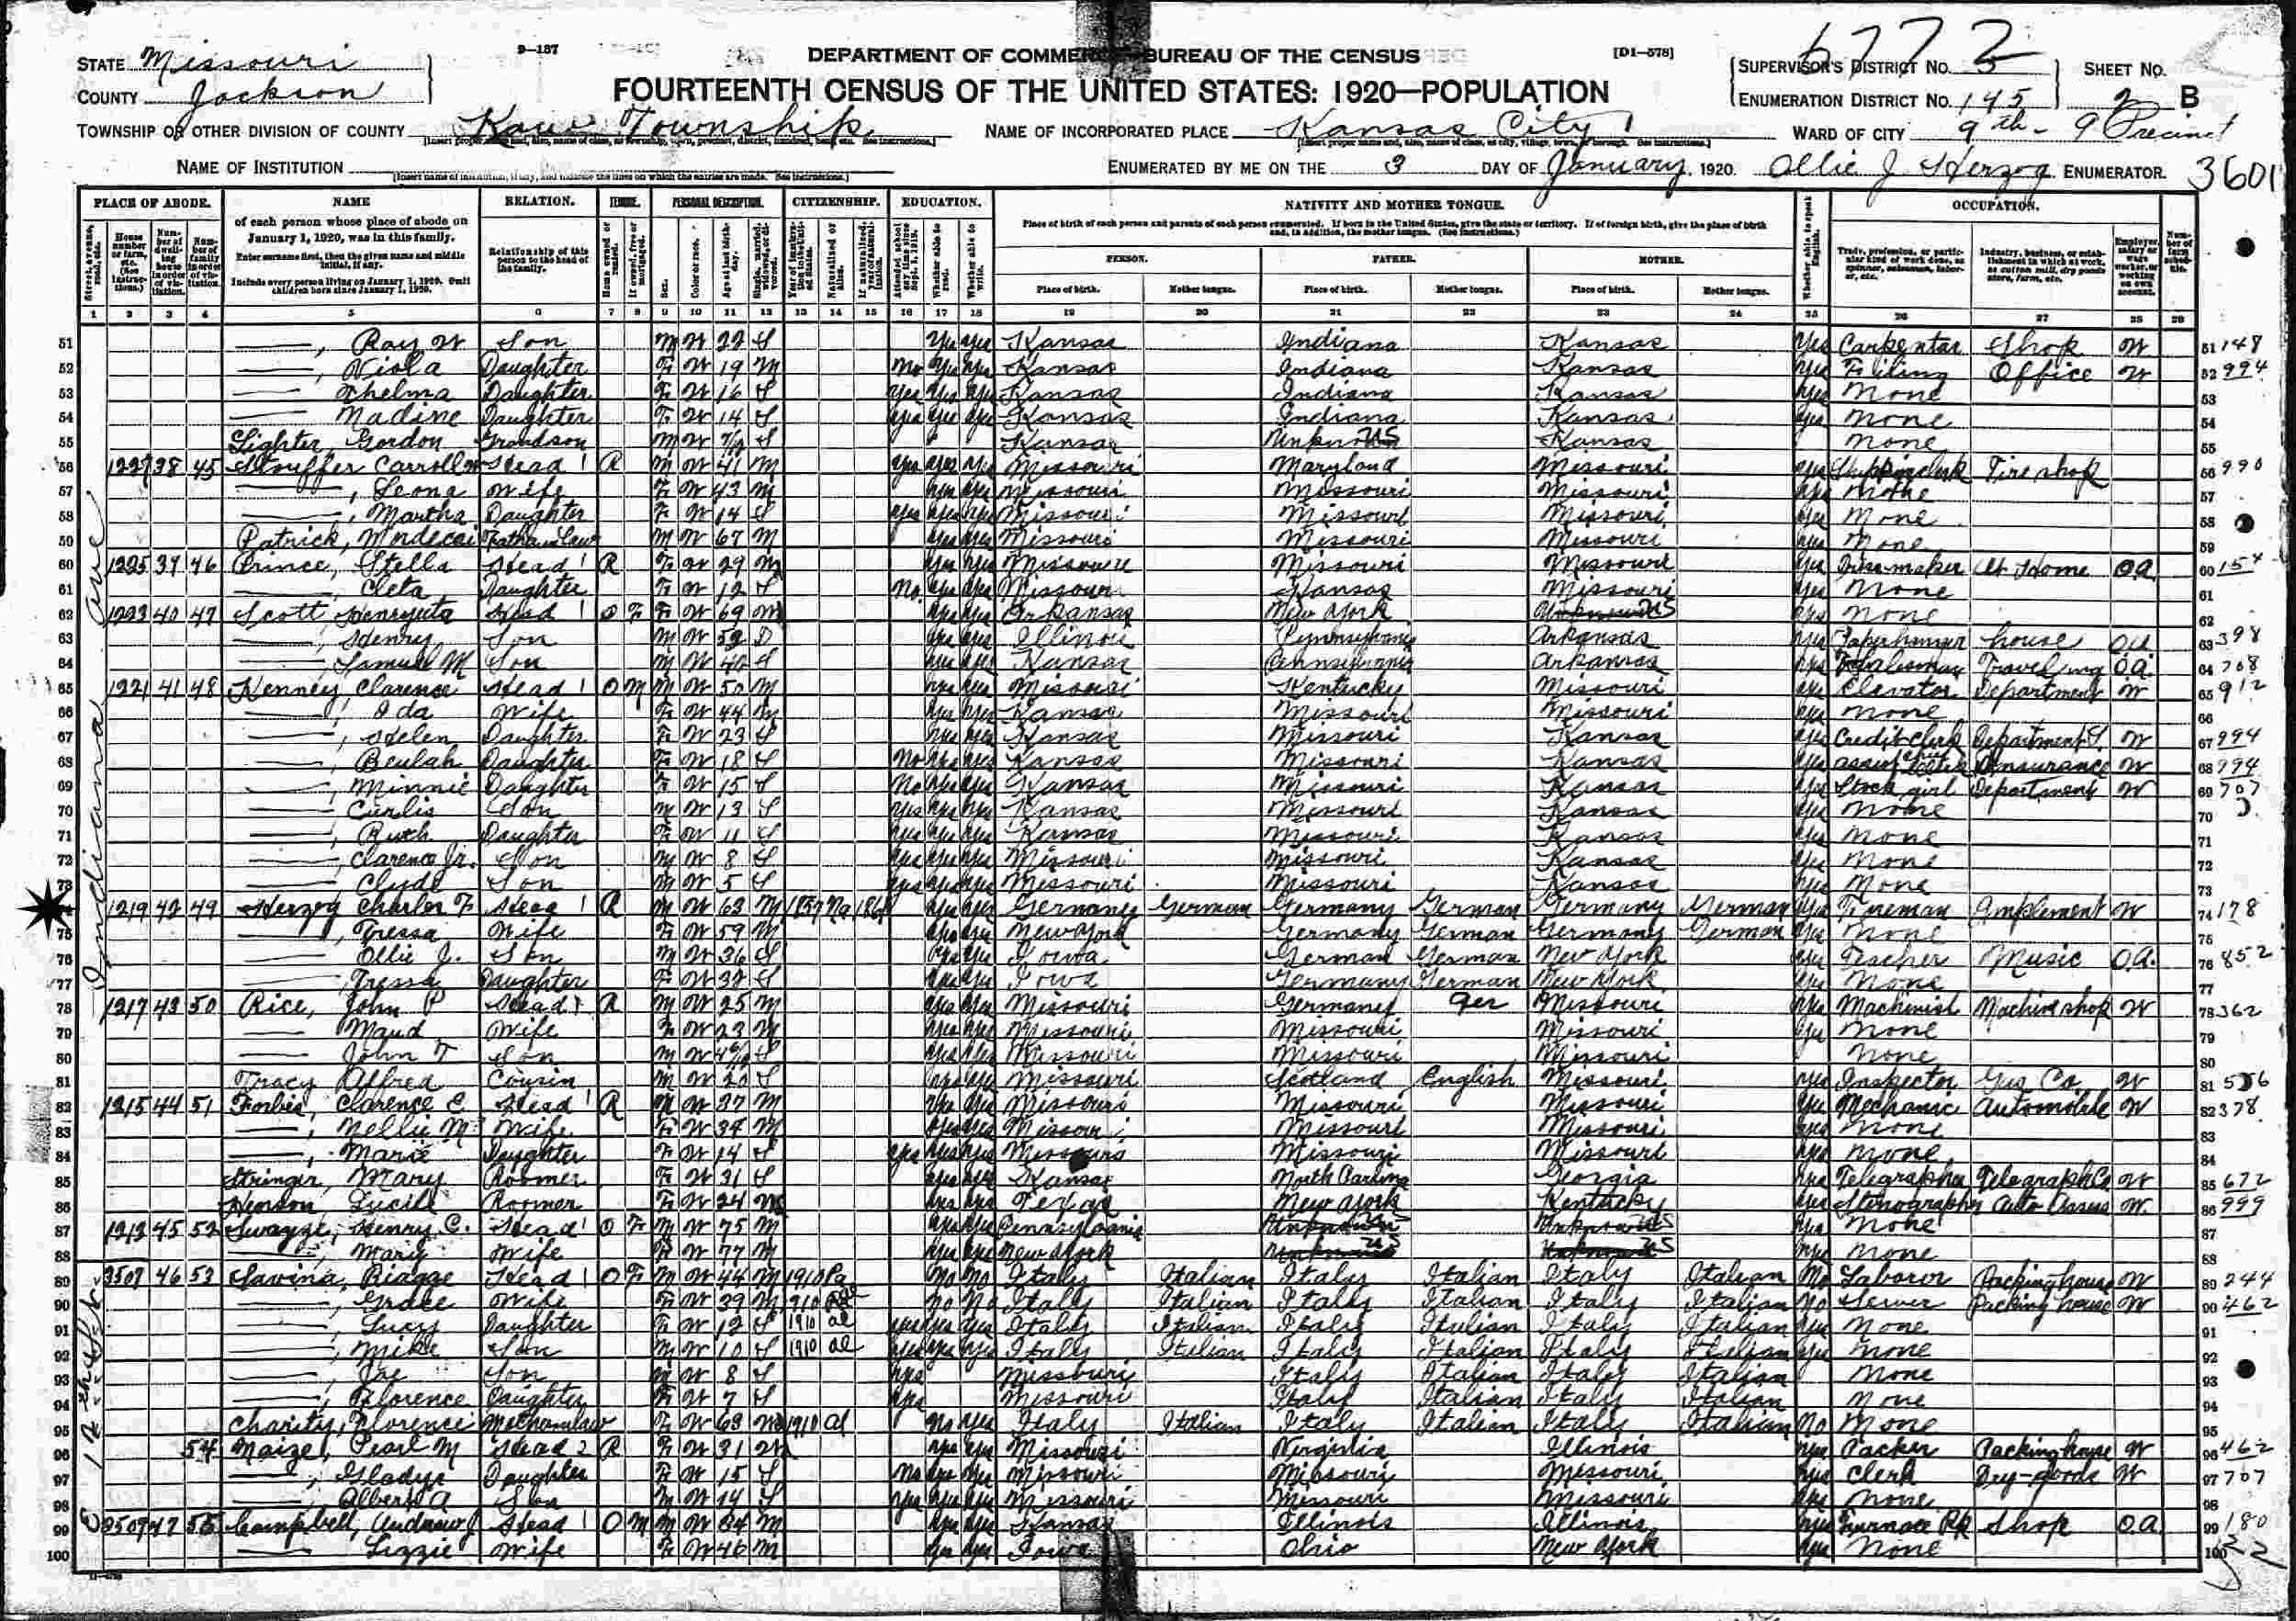 9—137
DEPARTMENT OF COMMERCE—BUREAU OF THE CENSUS
[D1—578]
6772
FOURTEENTH CENSUS OF THE UNITED STATES: 1920—POPULATION
STATE Missouri
COUNTY Jackson
SUPERVISOR'S DISTRICT NO. 5
ENUMERATION DISTRICT NO. 145
SHEET NO. 2 B
TOWNSHIP OR OTHER DIVISION OF COUNTY Kaw Township
NAME OF INCORPORATED PLACE Kansas City
WARD OF CITY 9th - 9 Precinct
NAME OF INSTITUTION
ENUMERATED BY ME ON THE 3 DAY OF January, 1920. Ollie J. Herzog ENUMERATOR.
3601
PLACE OF ABODE. NAME RELATION. TENURE. PERSONAL DESCRIPTION. CITIZENSHIP. EDUCATION. NATIVITY AND MOTHER TONGUE. OCCUPATION.
of each person whose place of abode on January 1, 1920, was in this family.
Enter surname first, then the given name and middle initial, if any.
Include every person living on January 1, 1920. Omit children born since January 1, 1920.
Relationship of this person to the head of the family.
Place of birth of each person and parents of each person enumerated. If born in the United States, give the state or territory. If of foreign birth, give the place of birth and, in addition, the mother tongue. (See instructions.)
PERSON. FATHER. MOTHER.
Place of birth. Mother tongue. Place of birth. Mother tongue. Place of birth. Mother tongue.
1 2 3 4 5 6 7 8 9 10 11 12 13 14 15 16 17 18 19 20 21 22 23 24 25 26 27 28 29
Indiana Ave
51 Ray W Son M W 22 S Yes Yes Kansas Indiana Kansas Yes Carpentar Shop W 51 148
52 Viola Daughter F W 19 M No Yes Yes Kansas Indiana Kansas Yes Filing Office W 52 994
53 Thelma Daughter F W 16 S Yes Yes Yes Kansas Indiana Kansas Yes None 53
54 Nadine Daughter F W 14 S Yes Yes Yes Kansas Indiana Kansas Yes None 54
55 Lighter, Gordon Grandson M W S Kansas Unknown US Kansas None 55
56 1227 38 45 Stouffer Carroll Head 1 R M W 41 M Yes Yes Yes Missouri Maryland Missouri Yes Tire shop 56 990
57 , Leona Wife F W 43 M Yes Yes Missouri Missouri Missouri Yes None 57
58 , Martha Daughter F W 14 S Yes Yes Yes Missouri Missouri Missouri Yes None 58
59 Patrick, Mordecai M W 67 M Yes Yes Missouri Missouri Missouri Yes None 59
60 1225 39 46 Prince, Stella Head 1 R F W 29 M Yes Yes Missouri Missouri Missouri Yes Dressmaker At Home OA 60 154
61 , Cleta Daughter F W 12 S No Yes Yes Missouri Kansas Missouri Yes None 61
62 1223 40 47 Scott Head 1 O F F W 69 Yes Yes Arkansas New York US Yes None 62
63 , Henry Son M W 52 D Yes Yes Illinois Pennsylvania Arkansas Yes Paperhanger house OA 63 398
64 , Samuel M Son M W S Yes Yes Kansas Pennsylvania Arkansas Yes Traveling OA 64 708
65 1221 41 48 Kenney Clarence Head 1 O M M W 50 M Yes Yes Missouri Kentucky Missouri Yes Elevator Department W 65 912
66 , Ida Wife F W 44 M Yes Yes Kansas Missouri Missouri Yes None 66
67 , Helen Daughter F W 23 S Yes Yes Kansas Missouri Kansas Yes Credit Clerk Department S. W 67 994
68 , Beulah Daughter F W 18 S No Yes Yes Kansas Missouri Kansas Yes Insurance W 68 994
69 , Minnie Daughter F W 15 S No Yes Yes Kansas Missouri Kansas Yes Stock girl Department W 69 707
70 Curlis Son M W 13 S Yes Yes Yes Kansas Missouri Kansas Yes None 70
71 , Ruth Daughter F W 11 S Yes Yes Yes Kansas Missouri Kansas Yes None 71
72 , Clarence Jr. Son M W 8 S Yes Yes Yes Missouri Missouri Kansas Yes None 72
73 , Clyde Son M W 5 S Yes Yes Yes Missouri Missouri Kansas Yes None 73
74 1219 42 49 Herzog Charles F Head 1 R M W 63 M 1857 Na Yes Yes Germany German Germany German Germany German Yes Fireman Implement W 74 178
75 , Tressa Wife F W 59 M Yes Yes New York Germany German Germany German Yes None 75
76 Ollie J. Son M W 36 S Yes Yes Iowa German German New York Yes Teacher Music O.A. 76 852
77 Tressa Daughter F W 32 S Yes Yes Iowa Germany German New York Yes None 77
78 1217 43 50 Rice, John P Head 1 R M W 25 M Yes Yes Missouri Germany Ger Missouri Yes Machinist Machine shop W 78 362
79 Maud Wife F W 23 M Yes Yes Missouri Missouri Missouri Yes None 79
80 John T Son M W S Yes Yes Missouri Missouri Missouri None 80
81 Tracy Alfred Cousin M W 20 S Yes Yes Missouri Scotland English Missouri Yes Inspector Gas Co W 81 556
82 1215 44 51 Forbis, Clarence E. Head 1 R M W 37 M Yes Yes Missouri Missouri Missouri Yes Mechanic Automobile W 82 378
83 , Nellie M Wife F W 34 M Yes Yes Missouri Missouri Missouri Yes None 83
84 , Marie Daughter F W 14 S Yes Yes Yes Missouri Missouri Missouri Yes None 84
85 Stringer, Mary Roomer F W 31 S Yes Yes Kansas North Carolina Georgia Yes Telegrapher Telegraph Co W 85 672
86 Henson, Lucile Roomer F W 24 Yes Yes Texas New York Kentucky Yes Stenographer W. 86 999
87 1213 45 52 Swayze, Henry C. Head 1 O F M W 75 M Yes Yes Pennsylvania Unknown US Unknown US Yes None 87
88 , Mary Wife F W 77 M Yes Yes New York Unknown US Unknown US Yes None 88
E 12th St
89 3507 46 53 Savina, Biagge Head 1 O F M W 44 M 1910 Pa No No Italy Italian Italy Italian Italy Italian No Laborer Packing house W 89 244
90 , Grace Wife F W 39 M 1910 No No Italy Italian Italy Italian Italy Italian No Sewer Packing house W 90 462
91 , Lucy Daughter F W 12 S 1910 al Yes Yes Yes Italy Italian Italy Italian Italy Italian Yes None 91
92 , Mike Son M W 10 S 1910 al Yes Yes Yes Italy Italian Italy Italian Italy Italian Yes None 92
93 , Joe Son M W 8 S Yes Missouri Italy Italian Italy Italian None 93
94 , Florence Daughter F W 7 S Yes Missouri Italy Italian Italy Italian None 94
95 Charity, Florence Motherinlaw F W 68 1910 al No Yes Italy Italian Italy Italian Italy Italian No None 95
96 54 Maize, Pearl M Head 2 R F W 31 Yes Yes Missouri Virginia Illinois Yes Packer Packing house W 96 462
97 , Gladys Daughter F W 15 S No Yes Yes Missouri Missouri Missouri Yes Clerk Dry-goods W 97 707
98 , Albert A Son M W 14 S Yes Yes Yes Missouri Missouri Missouri Yes None 98
99 3509 47 55 Campbell, Andrew J Head 1 O M M W M Yes Yes Kansas Illinois Illinois Yes Furnace Shop OA 99 180
100 Lizzie Wife F W 46 M Yes Yes Iowa Ohio New York Yes None 100